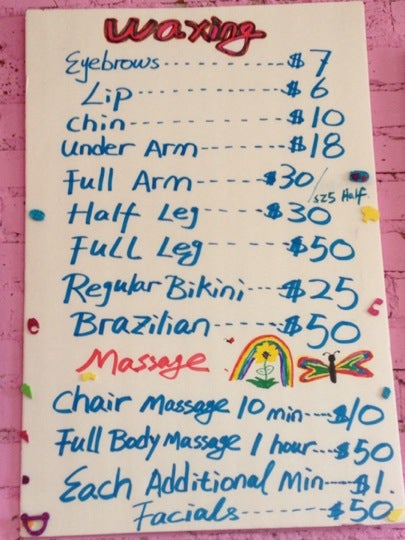 Waxing
Eyebrows ------- $7
Lip ----------- $6
Chin ---------- $10
Under Arm ----- $18
Full Arm ----- $30/$25 Half.
Half Leg ---- $30
Full Leg ------ $50
Regular Bikini --- $25
Brazilian ----- $50
Massage
Chair Massage 10 min---$10
Full Body Massage 1 hour...$50
Each Additional Min--$1.
Facials ------ $50